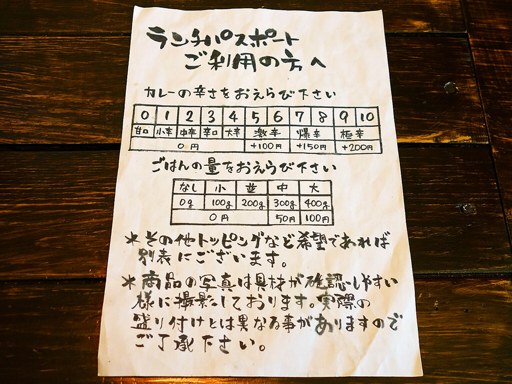 ランチパスポート
ご利用の方へ
カレーの辛さをおえらび下さい
0 1 2 3 4 5 6 7 8 9 10
甘口 小辛 中辛 辛口 大辛 激辛 爆辛 極辛
0円 +100円 +150円 +200円
ごはんの量をおえらび下さい
なし 小 並 中 大
0g 100g 200g 300g 400g
0円 50円 100円
*その他トッピングなど希望であれば
別表にございます。
*商品の写真は具材が確認しやすい
様に撮影しております。実際の
盛り付けとは異なる事がありますので
ご了承下さい。